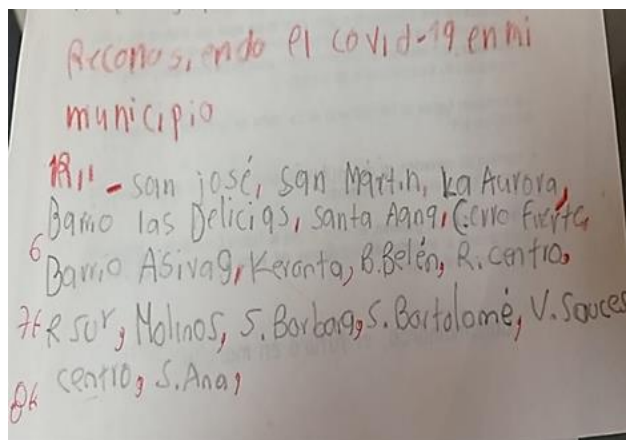 Reconosiendo el covid-19 en mi
municipio
R// - san josé, san Martin, La Aurora,
Barrio las Delicias, santa Aana, Cerro fuerte
6 Barrio Asivag, Keronta, B.Belén, R. centro,
7 R sur, Molinos, S. Barbara, S. Bartolomé, V. Sauces
8 centro, S. Ana,